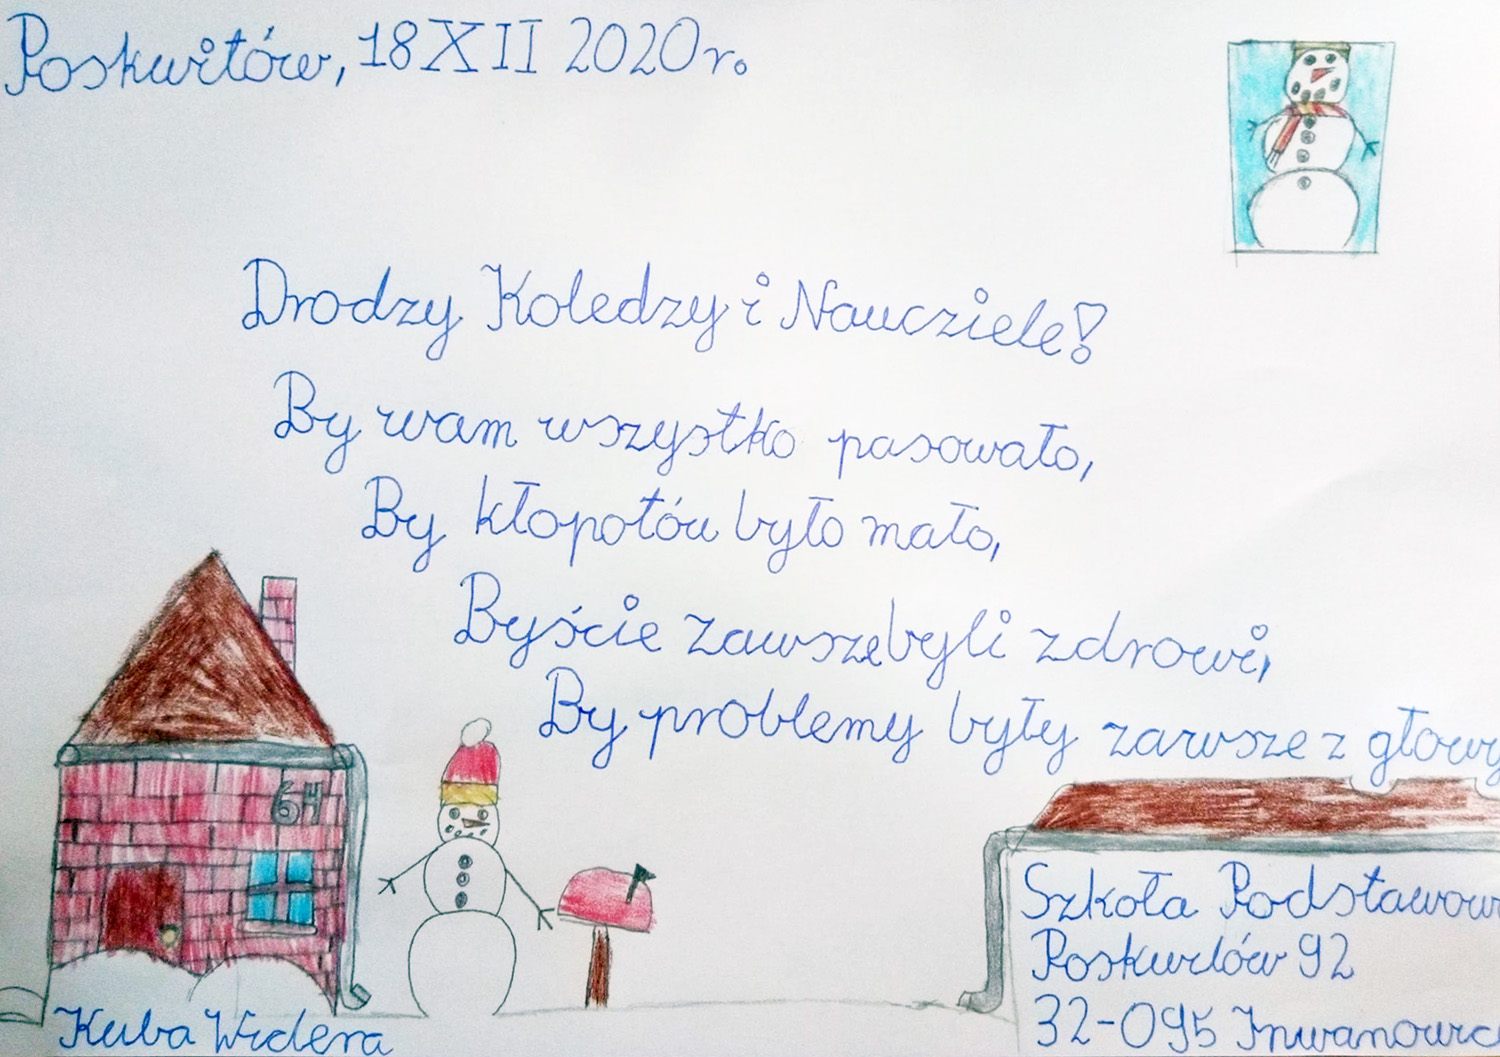 Poskwitów, 18 XII 2020 r.
Drodzy Koledzy i Naucziele!
By wam wszystko pasowało,
By kłopotów było mało,
Byście zawsze byli zdrowi,
By problemy były zawsze z głowy
64
Szkoła Podstawow
Poskwitów 92
32-095 Inwanowic
Kuba Widera